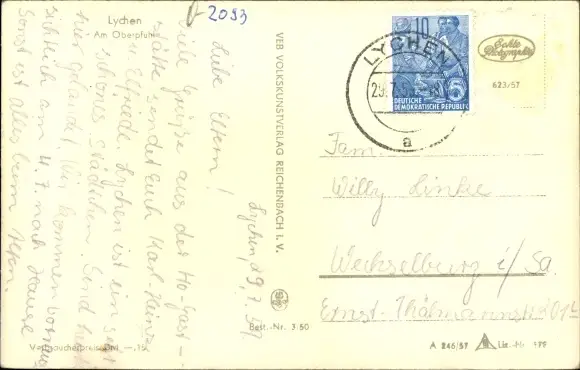 Lychen
Am Oberpfuhl
2093
Lychen, 29.7.57
Liebe Eltern!
Viele Grüße aus der Ho-Gast-
stätte sendet euch Karl-Heinz
u. Elfriede. Lychen ist ein sehr
schönes Städtchen. Sind
hier gelandet. Wir kommen voraus-
sichtlich am 4.7. nach Hause
Sonst ist alles beim
Verbraucherpreis DM —.15
VEB VOLKSKUNSTVERLAG REICHENBACH I. V.
Best.-Nr. 3/50
10
DEUTSCHE
DEMOKRATISCHE REPUBLIK
LYCHEN
29.7.5
a
Echte
Photographie
623/57
Fam.
Willy Linke
Wechselburg i/Sa.
Ernst-Thälmannstr
A 246/57
Liz.-Nr.